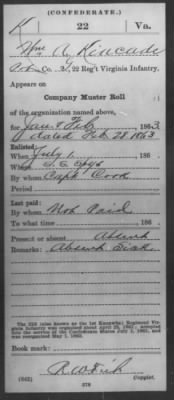 (CONFEDERATE.)
K 22 Va.
Wm A Kincade
Co. 22 Reg't Virginia Infantry.
Appears on
Company Muster Roll
of the organization named above,
for Jan & Feb, 1863.
Feb 28 1863
Enlisted:
When July 1 186
Where
By whom Capt Cook
Period
Last paid:
By whom Not Paid
To what time 186
Present or absent Absent
Remarks: Absent Sick
The 22d (also known as the 1st Kanawha) Regiment Virginia Infantry was organized
into the service of the Confederate States July 1, 1861, and was reorganized May 1, 1862.
Book mark:
(642)
Copyist.